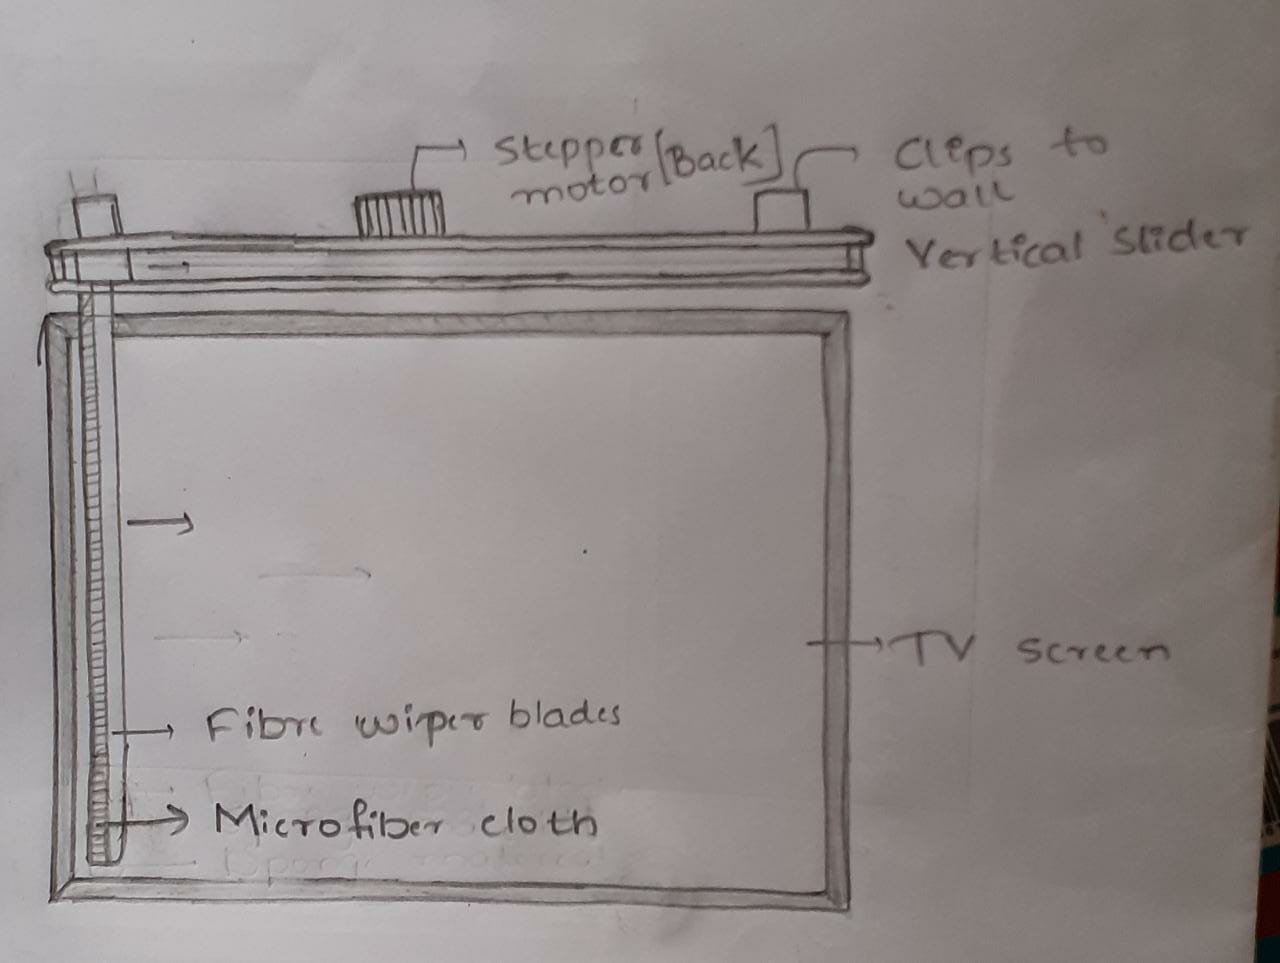 Stepper [Back]
motor
Clips to
wall
Vertical slider
TV screen
Fibre wiper blades
Microfiber cloth